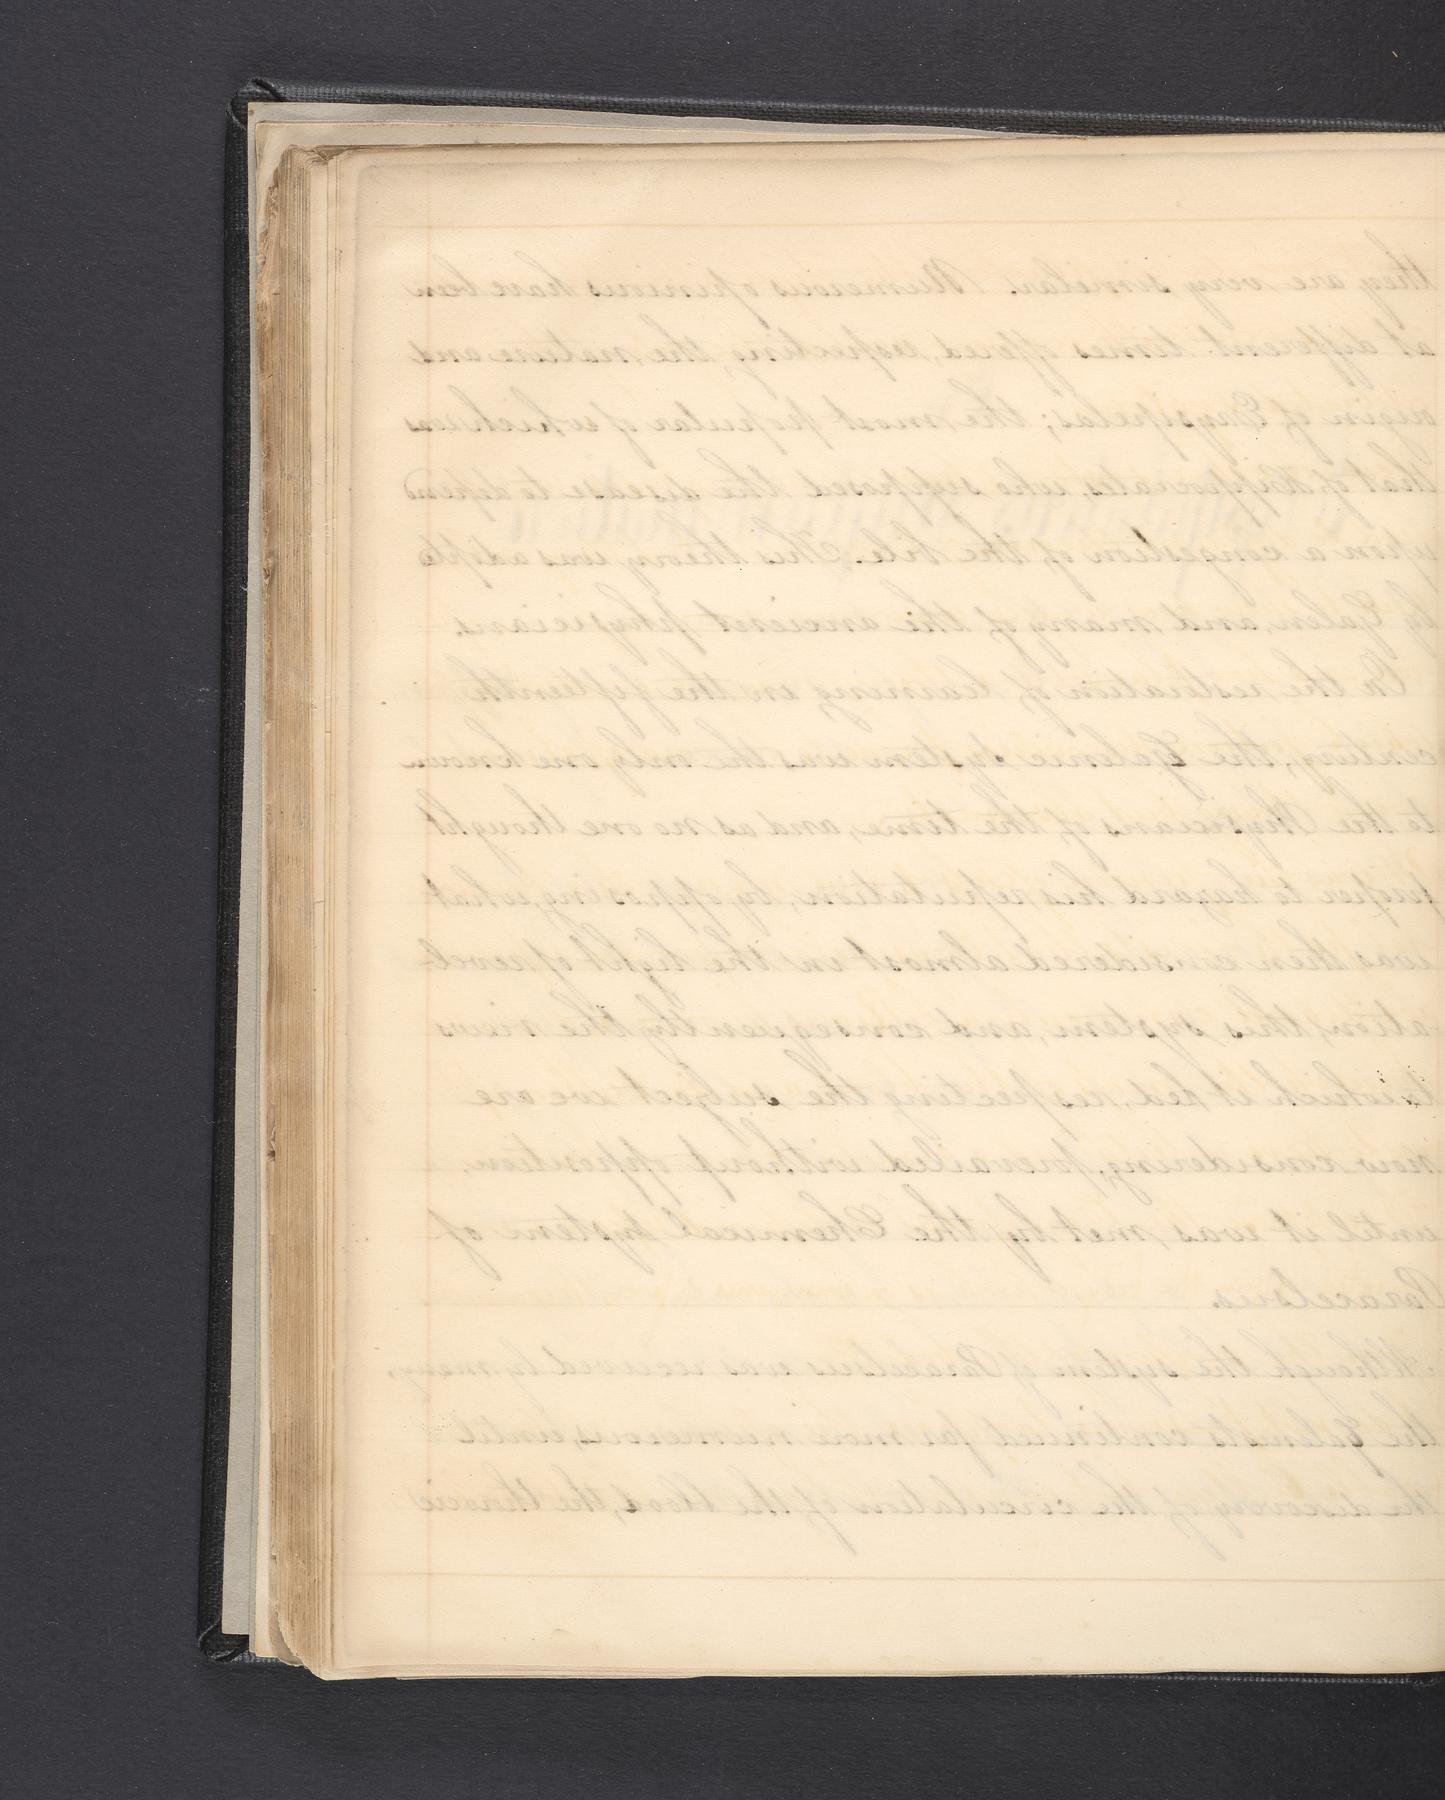 they are very similar. Numerous opinions have been
at different times offered, respecting the nature and
origin of Erysipelas; the most popular of which was
that of Hippocrates, who supposed the disease to depend
upon a congestion of the bile. This theory was adopted
by Galen, and many of the ancient physicians.
On the restoration of learning in the fifteenth
century, the Galenic system was the only one known
to the Physicians of the time, and as no one thought
proper to hazard his reputation, by opposing, what
was then considered almost in the light of revel-
ation, this system, and consequently the views
to which it led, respecting the subject we are
now considering, prevailed without opposition,
until it was met by the Chemical system of
Paracelsus.
Although the system of Paracelsus was received by many,
the Galenists continued far more numerous, until
the discovery of the circulation of the blood, the thoracic